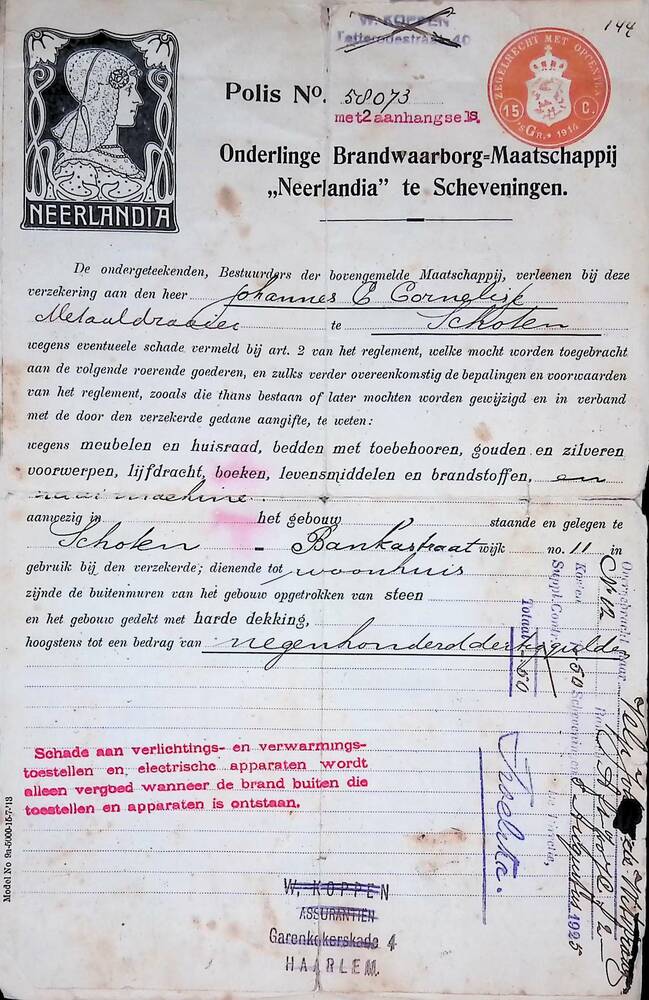 144
W. KOPPEN
Tetterodestraat 40
NEERLANDIA
Polis No. 58073
met 2 aanhangsels.
ZEGELRECHT MET OPCENTEN
15 C.
'sGR. * 1914
Onderlinge Brandwaarborg=Maatschappij
„Neerlandia” te Scheveningen.
De ondergeteekenden, Bestuurders der bovengemelde Maatschappij, verleenen bij deze
verzekering aan den heer Johannes C Cornelisse
Metaaldraaier te Schoten
wegens eventueele schade vermeld bij art. 2 van het reglement, welke mocht worden toegebracht
aan de volgende roerende goederen, en zulks verder overeenkomstig de bepalingen en voorwaarden
van het reglement, zooals die thans bestaan of later mochten worden gewijzigd en in verband
met de door den verzekerde gedane aangifte, te weten:
wegens meubelen en huisraad, bedden met toebehooren, gouden en zilveren
voorwerpen, lijfdracht, boeken, levensmiddelen en brandstoffen, en
naaimachine.
aanwezig in het gebouw staande en gelegen te
Schoten - Bankastraat wijk no. 11 in
gebruik bij den verzekerde; dienende tot woonhuis
zijnde de buitenmuren van het gebouw opgetrokken van steen
en het gebouw gedekt met harde dekking,
hoogstens tot een bedrag van negenhonderd dertig gulden
Schade aan verlichtings- en verwarmings-
toestellen en electrische apparaten wordt
alleen vergoed wanneer de brand buiten die
toestellen en apparaten is ontstaan.
W. KOPPEN
ASSURANTIËN
Garenkokerskade 4
HAARLEM.
Model No 9a-5000-15-7-'13
Overgebracht naar
No 12
Kosten
Suppl. Contr.
50
Totaal 50
Scheveningen, Augustus 1925
De Directie,